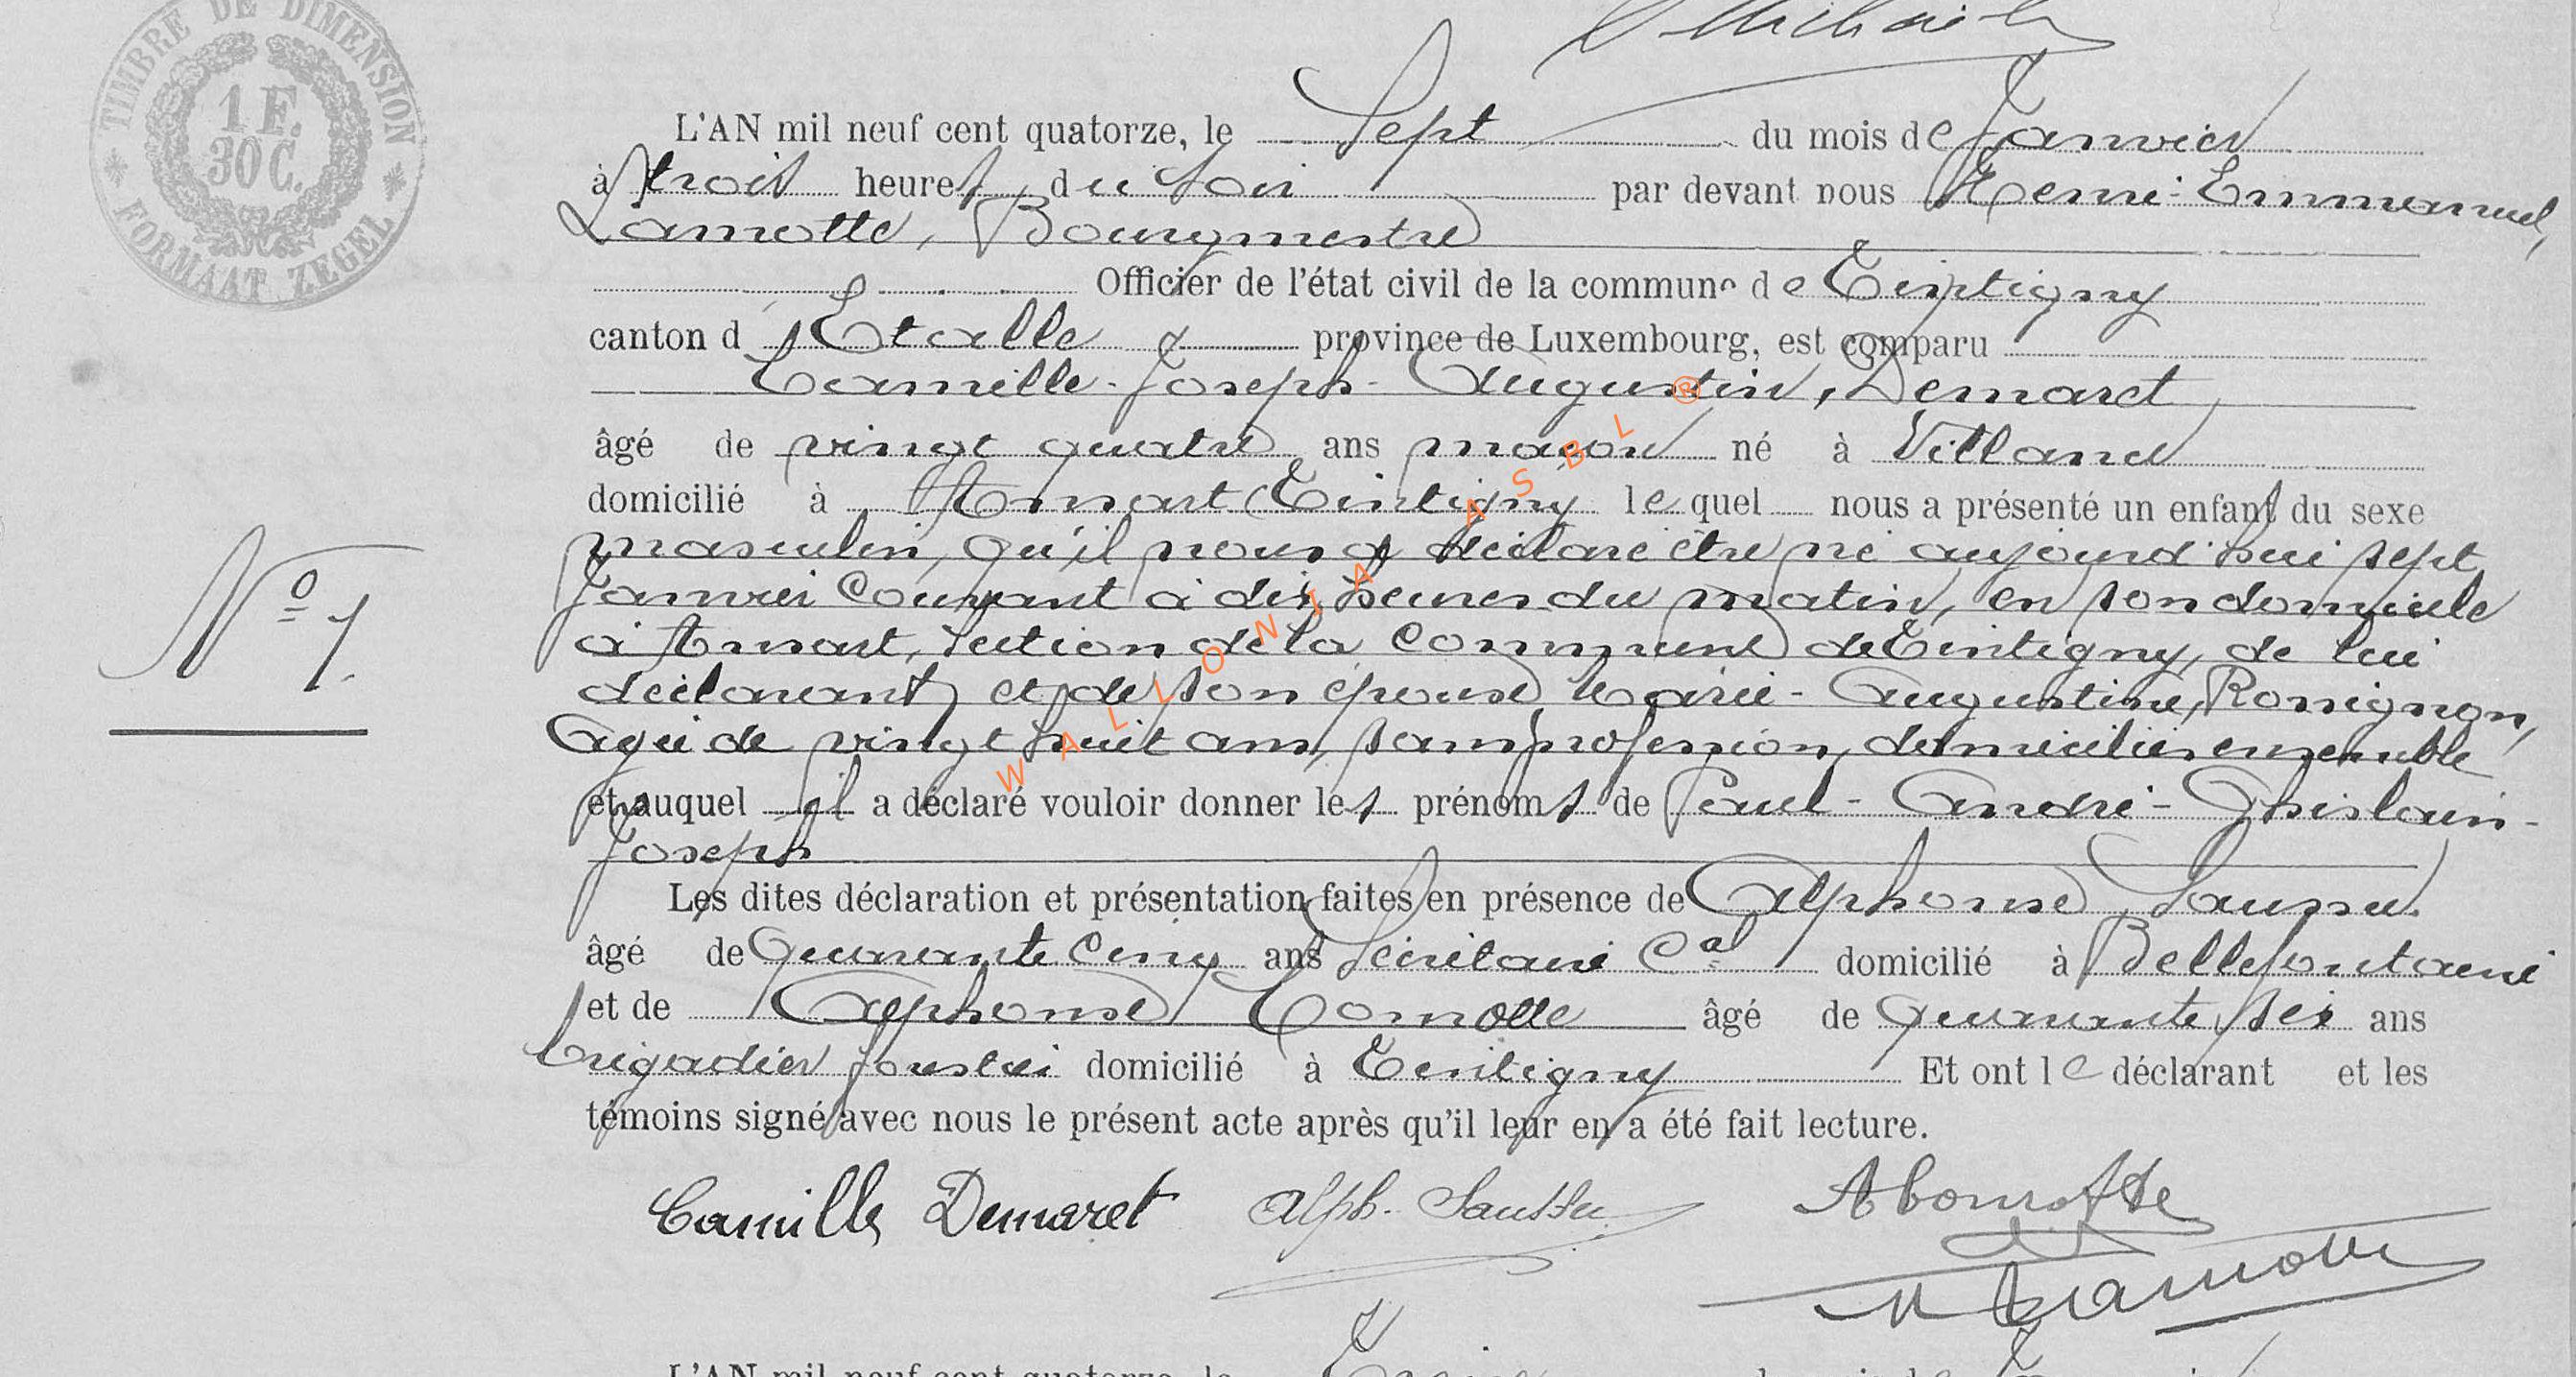 TIMBRE DE DIMENSION
1 F.
30 C.
FORMAAT ZEGEL
L'AN mil neuf cent quatorze, le Sept du mois de Janvier
à trois heures du Soir par devant nous Henri-Emmanuel,
Lamotte, Bourgmestre
Officier de l'état civil de la commune de Tintigny
canton d'Etalle province de Luxembourg, est comparu
Camille-Joseph-Augustin, Demaret
âgé de vingt quatre ans maçon né à Villance
domicilié à Ansart (Tintigny le quel nous a présenté un enfant du sexe
masculin, qu'il nous a déclaré être né aujourd'hui sept
Janvier Courant à dix heures du matin, en son domicile
à Ansart, Section de la Commune de Tintigny, de lui
déclarant, et de son épouse Marie-Augustine, Rossignon,
Agée de vingt huit ans, sans profession, domiciliés ensemble
et auquel il a déclaré vouloir donner les prénoms de Paul-André-Ghislain-
Joseph
Les dites déclaration et présentation faites en présence de Alphonse, Saussu
âgé de Quarante Cinq ans Secrétaire Cal domicilié à Bellefontaine
et de Alphonse Comotte âgé de Quarante six ans
brigadier forestier domicilié à Tintigny Et ont le déclarant et les
témoins signé avec nous le présent acte après qu'il leur en a été fait lecture.
No 1.
Camille Demaret Alph. Saussu A Comotte
H Lamotte
L'AN mil neuf cent quatorze, le
WALLONIA ASBL ®